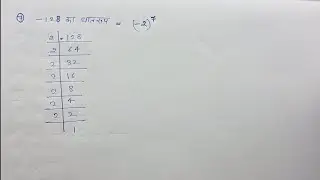 -128 का घातरूप = (-2)⁷
2 128
2 64
2 32
2 16
2 8
2 4
2 2
1